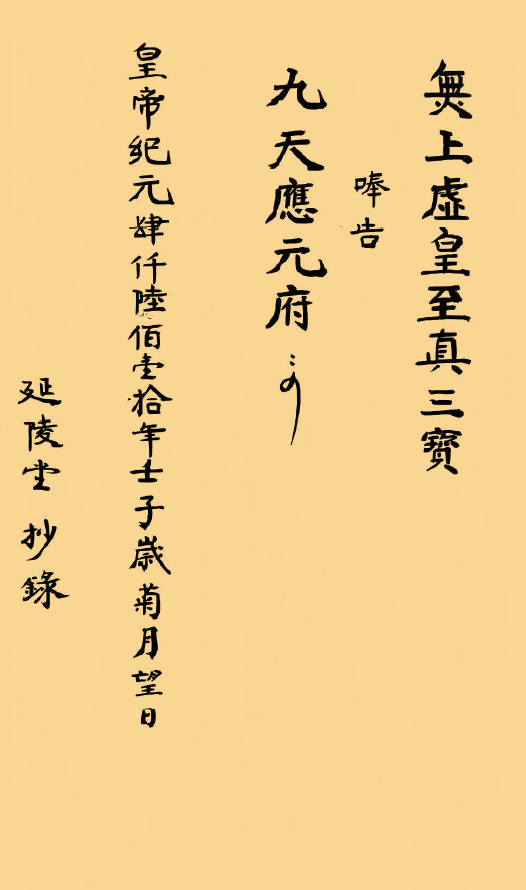 無上虛皇至真三寶
嗪告
九天應元府
皇帝紀元肆仟陸佰壹拾年壬子歲菊月望日
延陵堂 抄錄